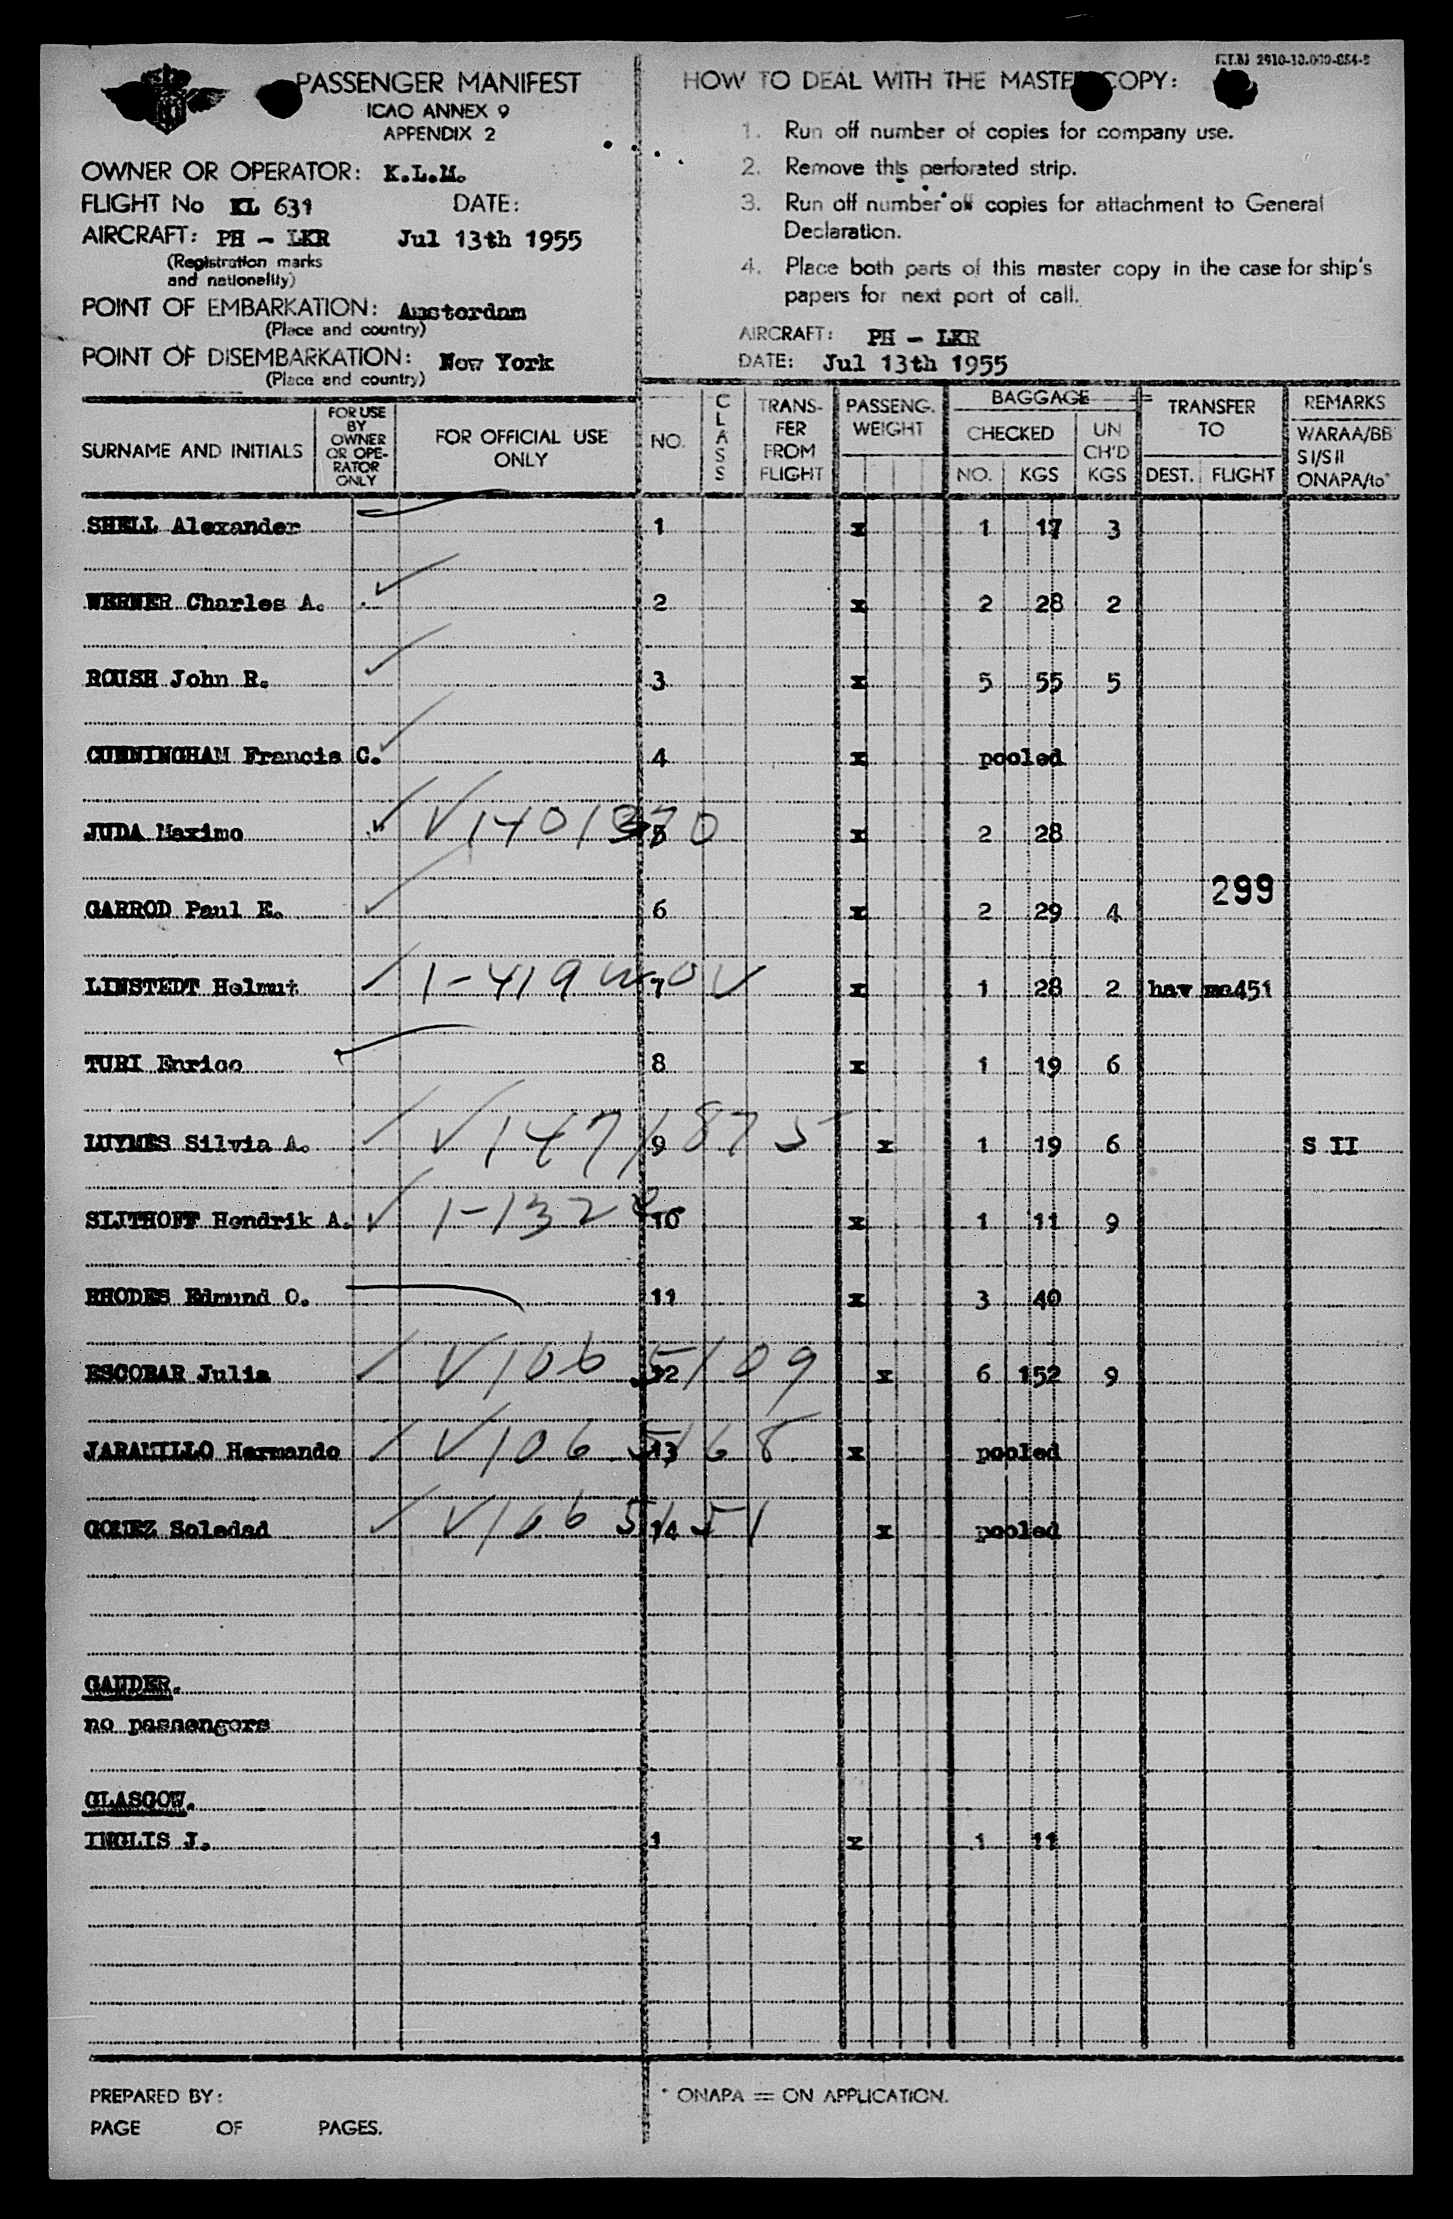 K.L.M. 2910-10.000-854-S
PASSENGER MANIFEST
ICAO ANNEX 9
APPENDIX 2
OWNER OR OPERATOR: K.L.M.
FLIGHT No KL 631 DATE:
AIRCRAFT: PH - LKR Jul 13th 1955
(Registration marks
and nationality)
POINT OF EMBARKATION: Amsterdam
(Place and country)
POINT OF DISEMBARKATION: New York
(Place and country)
HOW TO DEAL WITH THE MASTER COPY:
1. Run off number of copies for company use.
2. Remove this perforated strip.
3. Run off number of copies for attachment to General
Declaration.
4. Place both parts of this master copy in the case for ship's
papers for next port of call.
AIRCRAFT: PH - LKR
DATE: Jul 13th 1955
SURNAME AND INITIALS
FOR USE
BY
OWNER
OR OPE-
RATOR
ONLY
FOR OFFICIAL USE
ONLY
NO.
CLASS
TRANS-
FER
FROM
FLIGHT
PASSENG.
WEIGHT
BAGGAGE
CHECKED
NO. KGS
UN
CH'D
KGS
TRANSFER
TO
DEST. FLIGHT
REMARKS
WARAA/BB
SI/SII
ONAPA/to*
SHELL Alexander 1 x 1 17 3
WERNER Charles A. 2 x 2 28 2
ROUSH John R. 3 x 5 55 5
CUNNINGHAM Francis C. 4 x pooled
JUDA Maximo V1401370 5 x 2 28
299
GARROD Paul E. 6 x 2 29 4
LINSTEDT Helmut 1-419 7 x 1 28 2 hav na451
TURI Enrico 8 x 1 19 6
LUYMES Silvia A. V1471875 9 x 1 19 6 S II
SLITHOFF Hendrik A. 1-132 10 x 1 11 9
RHODES Edmund O. 11 x 3 40
ESCOBAR Julia V1065109 12 x 6 152 9
JARAMILLO Hermando V1065168 13 x pooled
GOMEZ Soledad V1065151 14 x pooled
GANDER.
no passengers
GLASGOW.
INGLIS J. 1 x 1 11
PREPARED BY:
* ONAPA = ON APPLICATION.
PAGE OF PAGES.